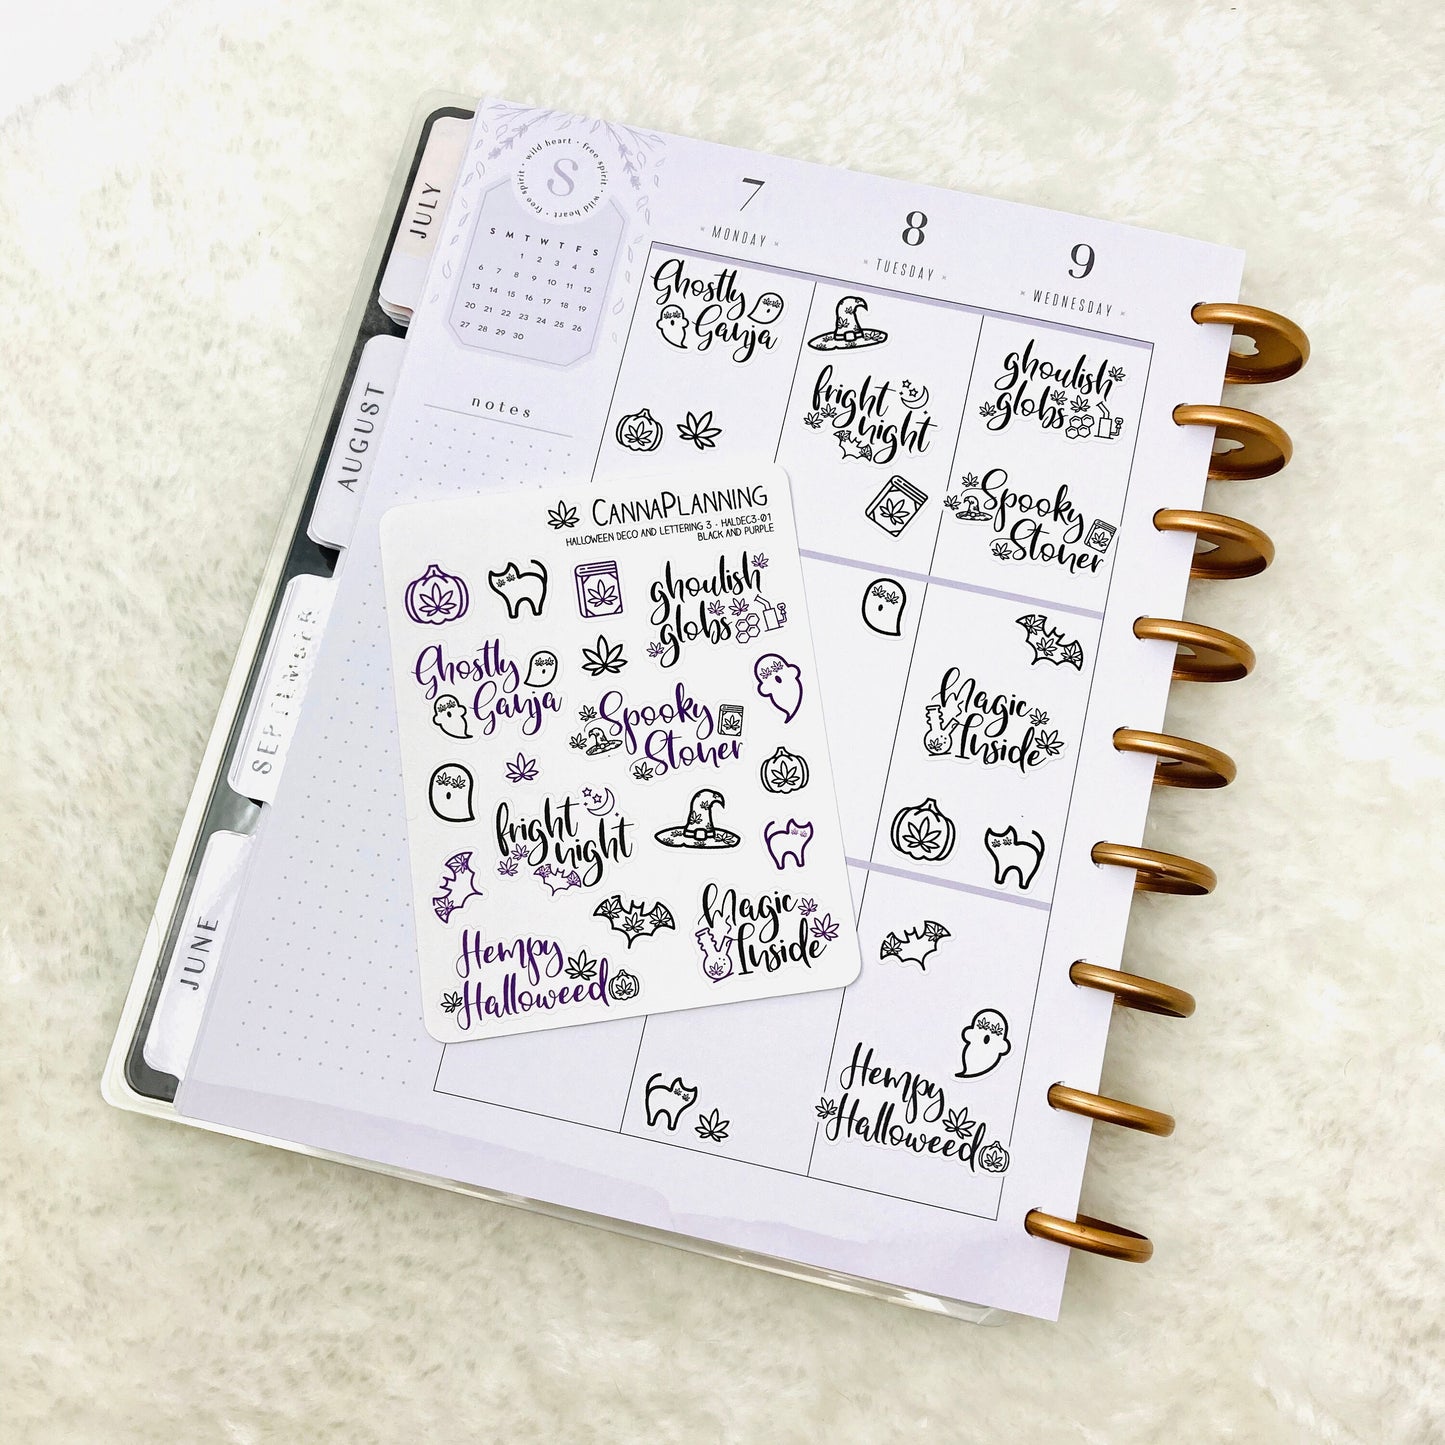 wild heart • free spirit • wild heart • free spirit •
S
S M T W T F S
1 2 3 4 5
6 7 8 9 10 11 12
13 14 15 16 17 18 19
20 21 22 23 24 25 26
27 28 29 30
notes
JULY
AUGUST
SEPTEMBER
JUNE
7
MONDAY
8
TUESDAY
9
WEDNESDAY
Ghostly
Ganja
fright
night
ghoulish
globs
Spooky
Stoner
Magic
Inside
Hempy
Halloweed
CANNAPLANNING
HALLOWEEN DECO AND LETTERING 3 - HALDEC3-01
BLACK AND PURPLE
ghoulish
globs
Ghostly
Ganja
Spooky
Stoner
fright
night
Magic
Inside
Hempy
Halloweed